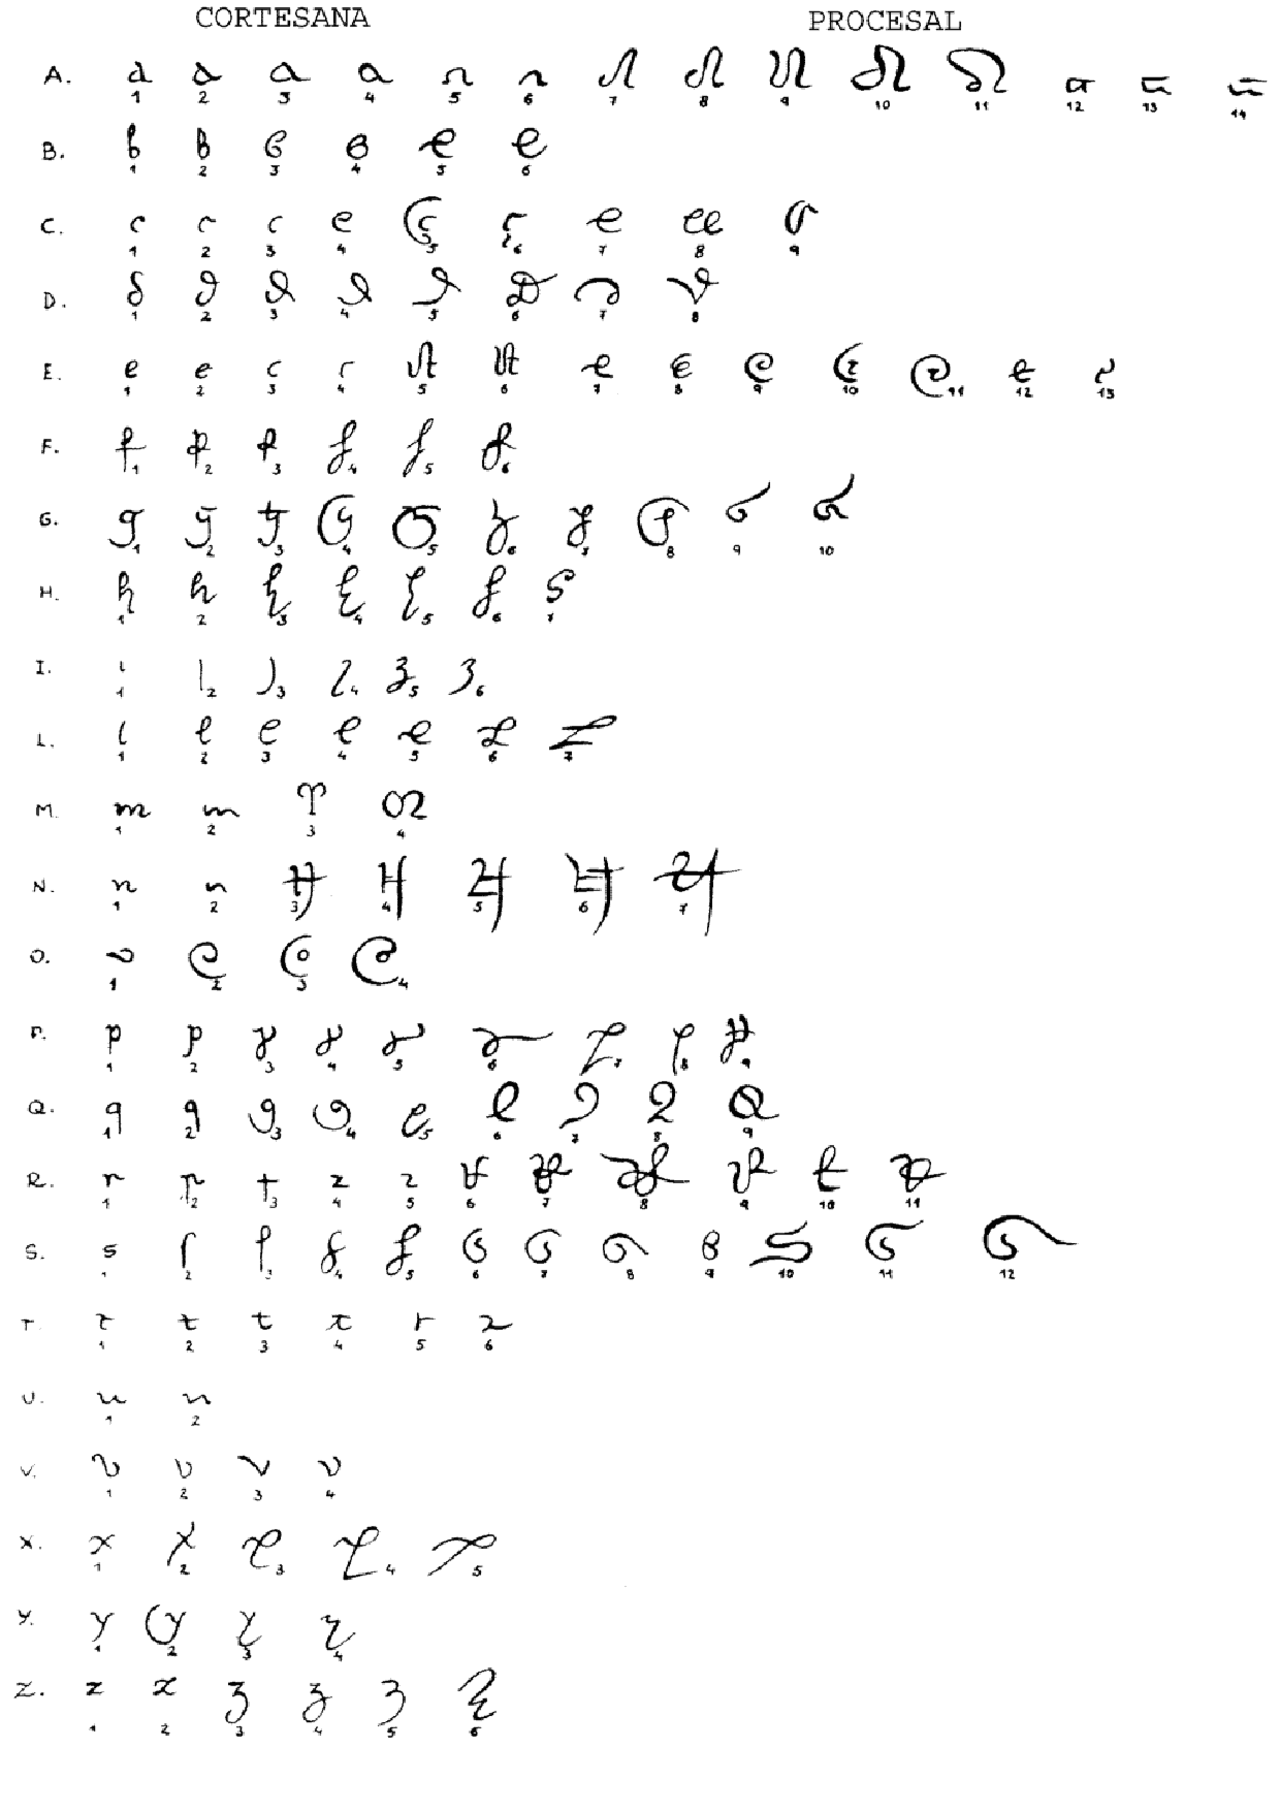 CORTESANA PROCESAL
A. a a a a a a a a a a a a a a
1 2 3 4 5 6 7 8 9 10 11 12 13 14
B. b b b b b b
1 2 3 4 5 6
C. c c c c c c c c c
1 2 3 4 5 6 7 8 9
D. d d d d d d d d
1 2 3 4 5 6 7 8
E. e e e e e e e e e e e e e
1 2 3 4 5 6 7 8 9 10 11 12 13
F. f f f f f f
1 2 3 4 5 6
G. g g g g g g g g g g
1 2 3 4 5 6 7 8 9 10
H. h h h h h h h
1 2 3 4 5 6 7
I. i i i i i i
1 2 3 4 5 6
L. l l l l l l l
1 2 3 4 5 6 7
M. m m m m
1 2 3 4
N. n n n n n n n
1 2 3 4 5 6 7
O. o o o o
1 2 3 4
P. p p p p p p p p p
1 2 3 4 5 6 7 8 9
Q. q q q q q q q q q
1 2 3 4 5 6 7 8 9
R. r r r r r r r r r r r
1 2 3 4 5 6 7 8 9 10 11
S. s s s s s s s s s s s s
1 2 3 4 5 6 7 8 9 10 11 12
T. t t t t t t
1 2 3 4 5 6
U. u u
1 2
V. v v v v
1 2 3 4
X. x x x x x
1 2 3 4 5
Y. y y y y
1 2 3 4
Z. z z z z z z
1 2 3 4 5 6